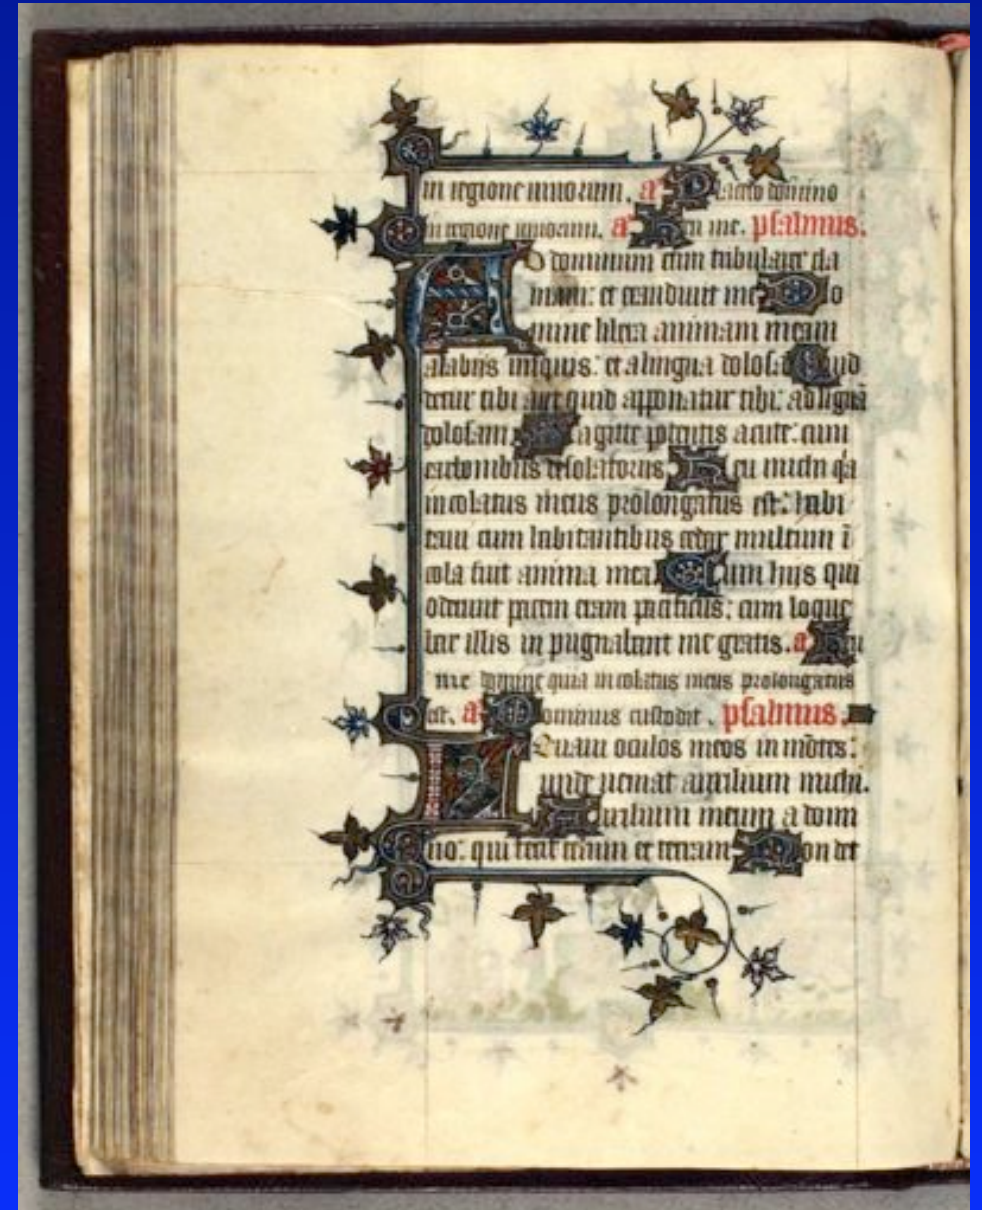 in regione uiuorum. a Placebo domino
in regione uiuorum. a Heu me. psalmus.
Ad dominum cum tribularer cla
maui: et exaudiuit me Do
mine libera animam meam
alabijs iniquis: et alingua dolosa Quid
detur tibi aut quid apponatur tibi: ad linguā
dolosam Sagitte potentis acute: cum
carbonibus desolatorijs Heu michi qa
incolatus meus prolongatus est: habi
taui cum habitantibus cedar multum ī
cola fuit anima mea Cum hijs qui
oderunt pacem eram pacificus: cum loque
bar illis in pugnabant me gratis. a Heu
me domine quia incolatus meus prolongatus
est. a Dominus custodit. psalmus.
Leuaui oculos meos in mōtes:
unde ueniat auxilium michi.
Auxilium meum a domi
no: qui fecit celum et terram Non det